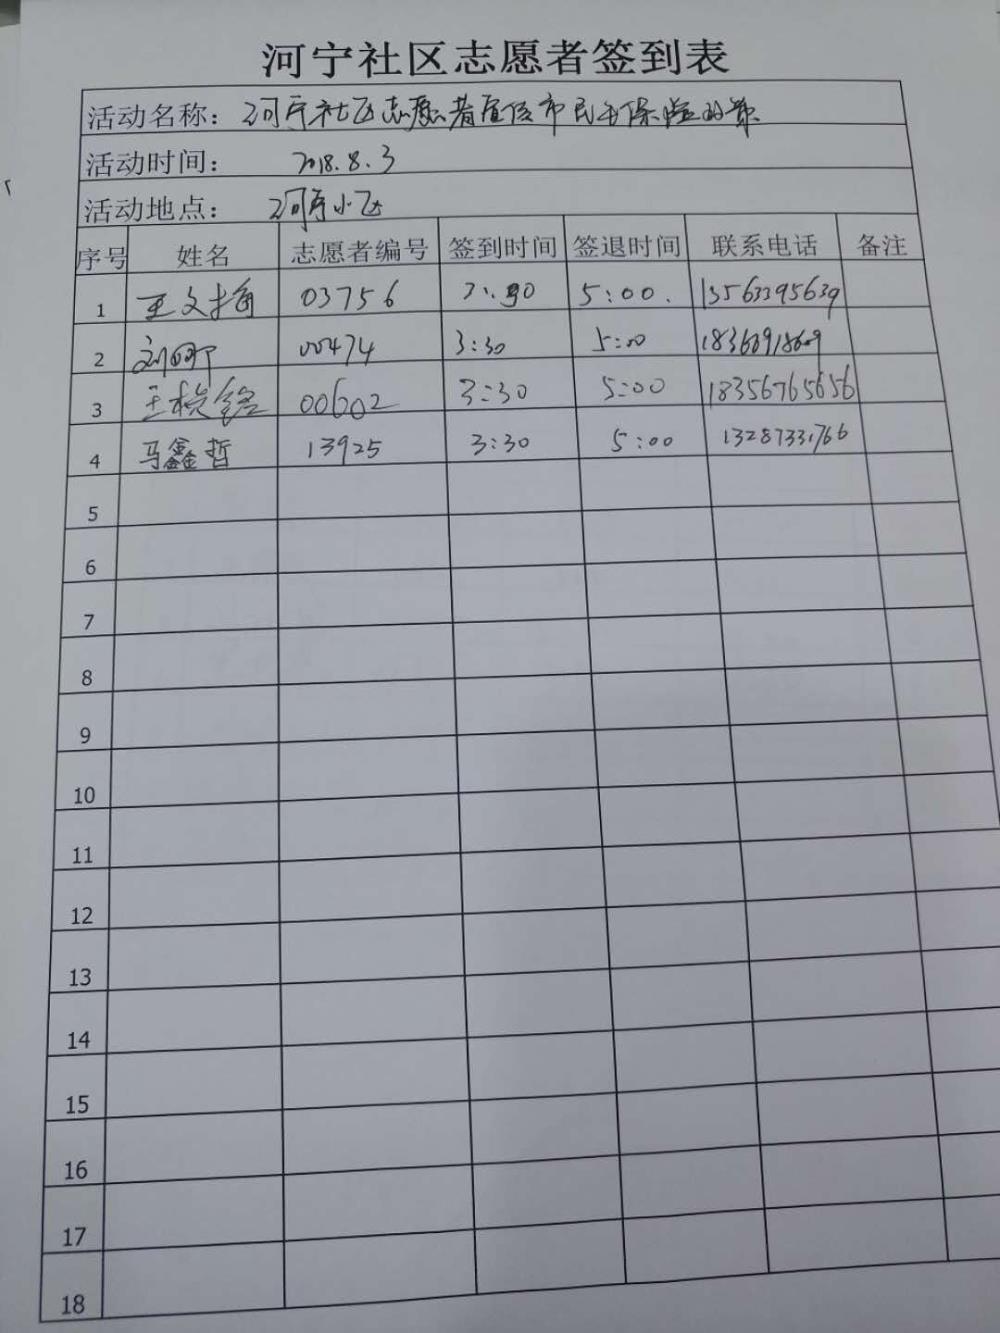 河宁社区志愿者签到表
活动名称：河宁社区志愿者宣传市民保险政策
活动时间：2018.8.3
活动地点：河宁小区
序号 姓名 志愿者编号 签到时间 签退时间 联系电话 备注
1 王文梅 03756 3:30 5:00. 13563395639
2 刘 00474 3:30 5:00
3 王 00602 3:30 5:00 18356765656
4 马鑫哲 13925 3:30 5:00 13287331766
5
6
7
8
9
10
11
12
13
14
15
16
17
18